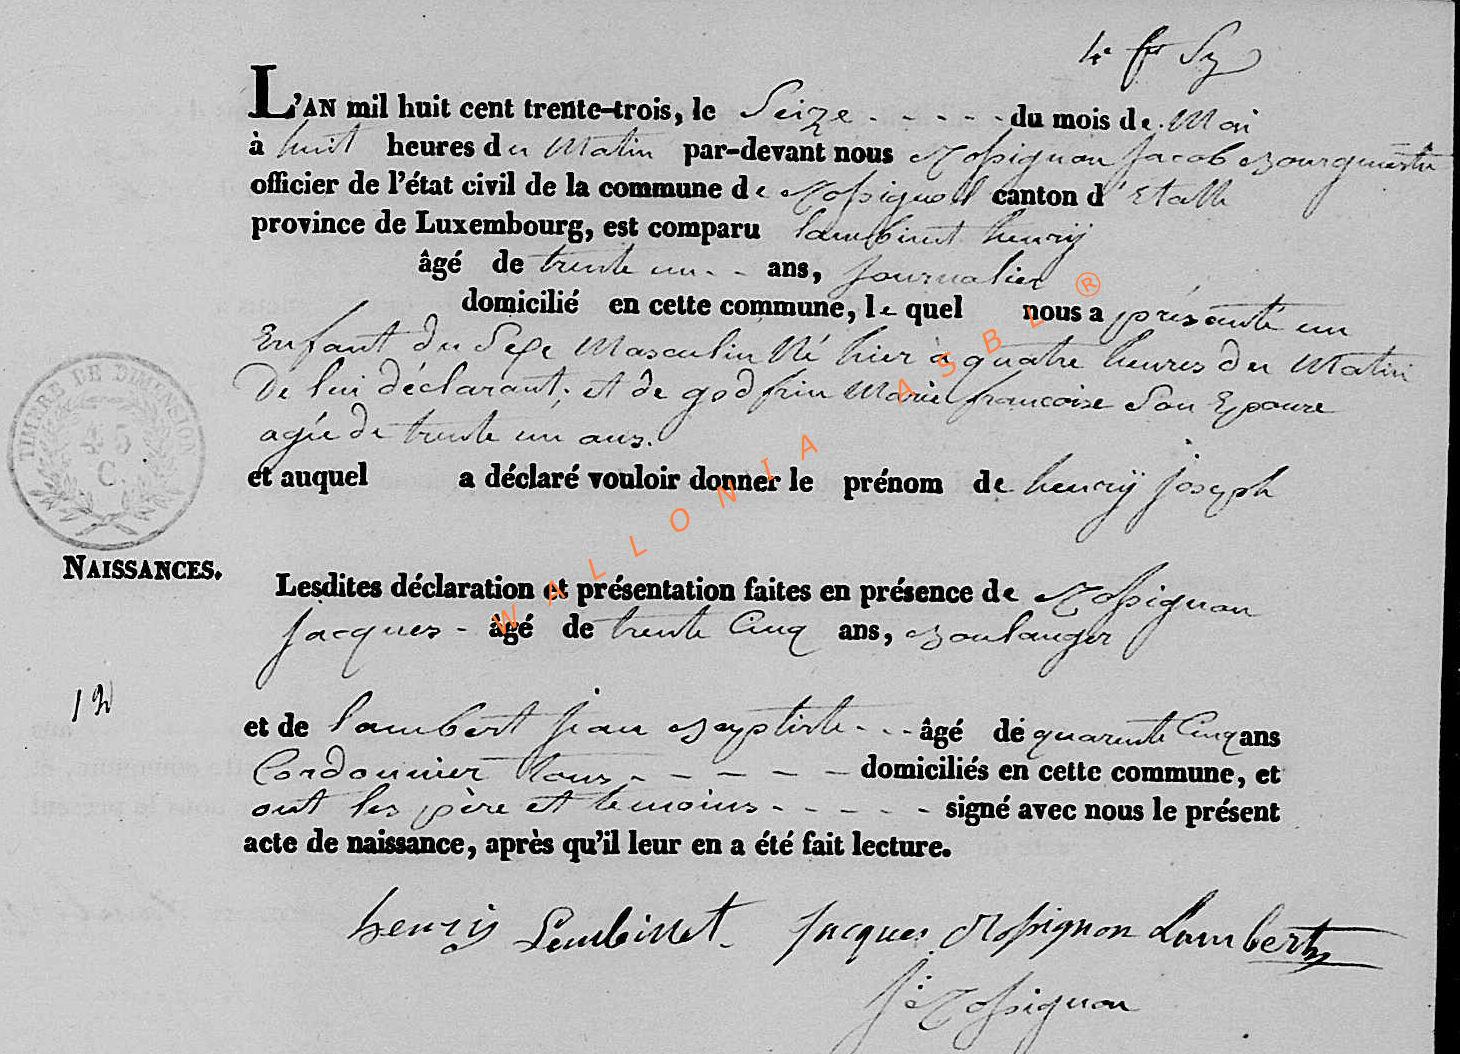 4e fr Sy
L'AN mil huit cent trente-trois, le Seize - - - - - du mois de Mai
à huit heures du Matin par-devant nous Rossignon Jacob Bourguemetre
officier de l'état civil de la commune de Rossignoll canton d'Etalle
province de Luxembourg, est comparu lambinet henrÿ
âgé de trente un - - ans, journalier
domicilié en cette commune, le quel nous a présenté un
Enfant du Sexe Masculin Né hier à quatre heures du Matin
De lui déclarant; et de godfrin Marie francoise Son Epouse
agée de trente un ans.
et auquel a déclaré vouloir donner le prénom de henrÿ joseph
TIMBRE DE DIMENSION
45
C.
NAISSANCES.
Lesdites déclaration et présentation faites en présence de Rossignon
jacques - âgé de trente Cinq ans, Boulanger
12
et de lambert jean Baptiste - - - âgé de quarente Cinq ans
Cordonnier tous - - - - - - domiciliés en cette commune, et
ont les père et temoins - - - - - signé avec nous le présent
acte de naissance, après qu'il leur en a été fait lecture.
henrÿ Lambinet Jacques Rossignon Lambert
J. Rossignon
WALLONIA ASBL ®